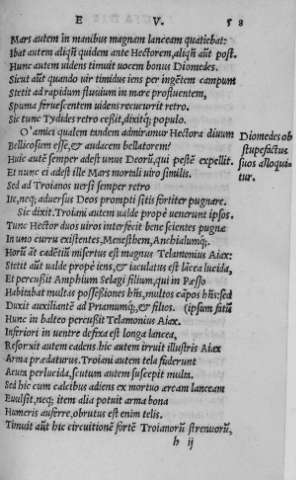 E V. 58
Mars autem in manibus magnam lanceam quatiebat:
Ibat autem aliqñ quidem ante Hectorem, aliqñ aũt post.
Hunc autem uidens timuit uocem bonus Diomedes.
Sicut aũt quando uir timidus iens per ingẽtem campum
Stetit ad rapidum fluuium in mare profluentem,
Spuma feruescentem uidens recucurrit retro.
Sic tunc Tydides retro cessit, dixitq; populo.
O' amici qualem tandem admiramur Hectora diuum
Diomedes ob
Bellicosum esse, & audacem bellatorem?
stupefactus
Huic autẽ semper adest unus Deorũ, qui pestẽ expellit.
suos alloqui-
Et nunc ei adest ille Mars mortali uiro similis.
tur.
Sed ad Troianos uersi semper retro
Ite, neq; aduersus Deos prompti sitis fortiter pugnare.
Sic dixit. Troiani autem ualde propè uenerunt ipsos.
Tunc Hector duos uiros interfecit bene scientes pugnæ
In uno curru existentes, Menesthem, Anchialumq;.
Horũ aũt cadẽtiũ misertus est magnus Telamonius Aiax:
Stetit aũt ualde propè iens, & iaculatus est lãcea lucida,
Et percussit Amphium Selagi filium, qui in Pæso
Habitabat multas possessiones hñs, multos cãpos hñs: sed
Duxit auxiliantẽ ad Priamumq;, & filios. (ipsum fatũ
Hunc in balteo percussit Telamonius Aiax.
Inferiori in uentre defixa est longa lancea,
Resonuit autem cadens. hic autem irruit illustris Aiax
Arma prædaturus. Troiani autem tela fuderunt
Acuta perlucida, scutum autem suscepit multa.
Sed hic cum calcibus adiens ex mortuo æream lanceam
Euulsit, neq; item alia potuit arma bona
Humeris auferre, obrutus est enim telis.
Timuit aũt hic circuitionẽ fortẽ Troianorũ strenuorũ,
h ij